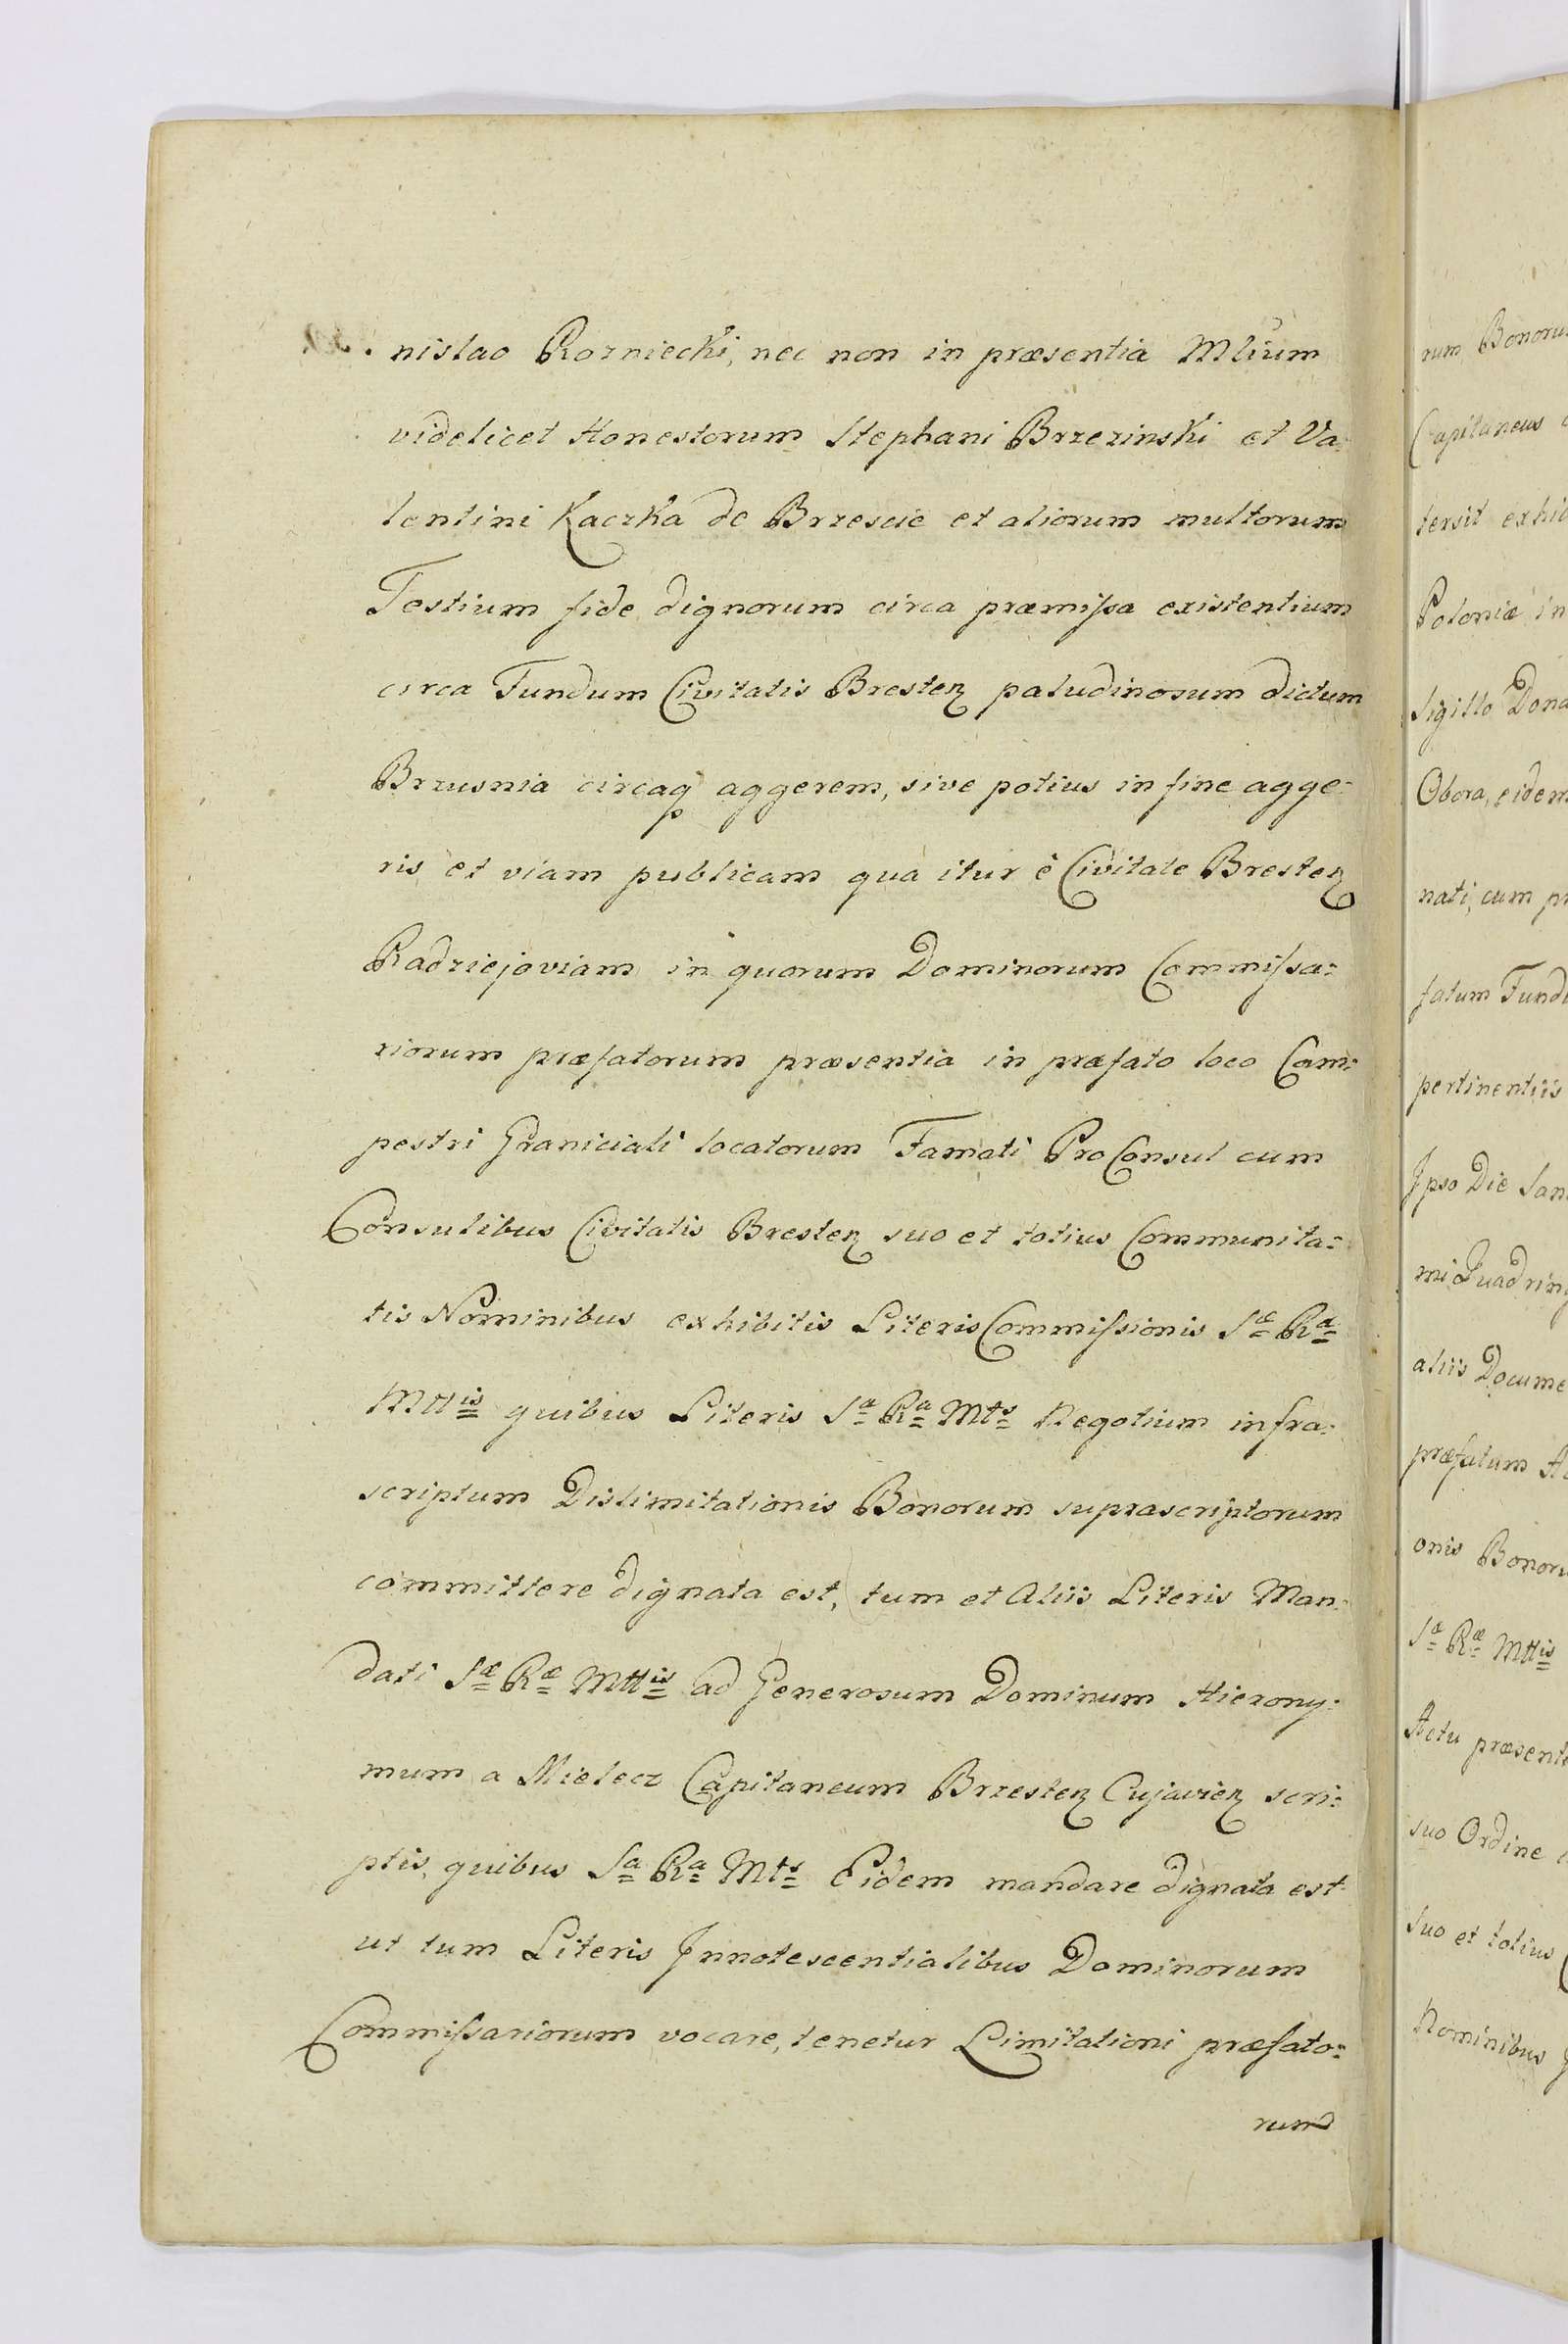 nislao Rozniecki, nec non in præsentia Mlium
videlicet Honestorum Stephani Brzezinski et Va:
lentini Kaczka de Brzescie et aliorum multorum
Testium fide dignorum circa præmissa existentium
circa Fundum Civitatis Bresten paludinosum dictum
Brzusnia circaq aggerem, sive potius in fine agge:
ris et viam publicam qua itur è Civitate Bresten
Radziejoviam in quorum Dominorum Commissa:
riorum præfatorum præsentia in præfato loco Cam:
pestri Graniciali locatorum Famati ProConsul cum
Consulibus Civitatis Bresten suo et totius Communita:
tis Nominibus exhibitis Literis Commissionis Sæ Ræ
Mttis quibus Literis Sa Ra Mts Negotium infra:
scriptum Dislimitationis Bonorum suprascriptorum
committere dignata est, tum et Aliis Literis Man:
dati Sæ Ræ Mttis ad Generosum Dominum Hierony:
mum a Mielecz Capitaneum Brzesten Cujavien scri:
ptis, quibus Sa Ra Mts Eidem mandare dignata est
ut tum Literis Innotescentialibus Dominorum
Commissariorum vocare, tenetur Limitationi præfato:
rum
rum Bonoru
Capitaneus
tersit exhib
Poloniæ in
sigillo Dona
Obora, eidem
nati, cum pr
fatum Fundu
pertinentiis
Ipso Die San
mi Quadring
aliis Docume
præfatum
onis Bonoru
Sæ Ræ Mttis
Actu præsent
suo Ordine
suo et totius
Nominibus